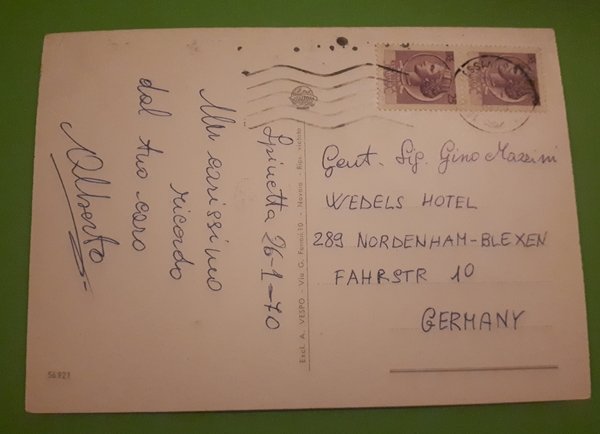 Spinetta 26-1-70
Un carissimo
ricordo
dal tuo caro
Alberto
Gent. Sig. Gino Mazzini
WEDELS HOTEL
289 NORDENHAM-BLEXEN
FAHRSTR 10
GERMANY
Excl. A. VESPO - Via G. Ferrari, 10 - Novara - Rip. vietata
56921